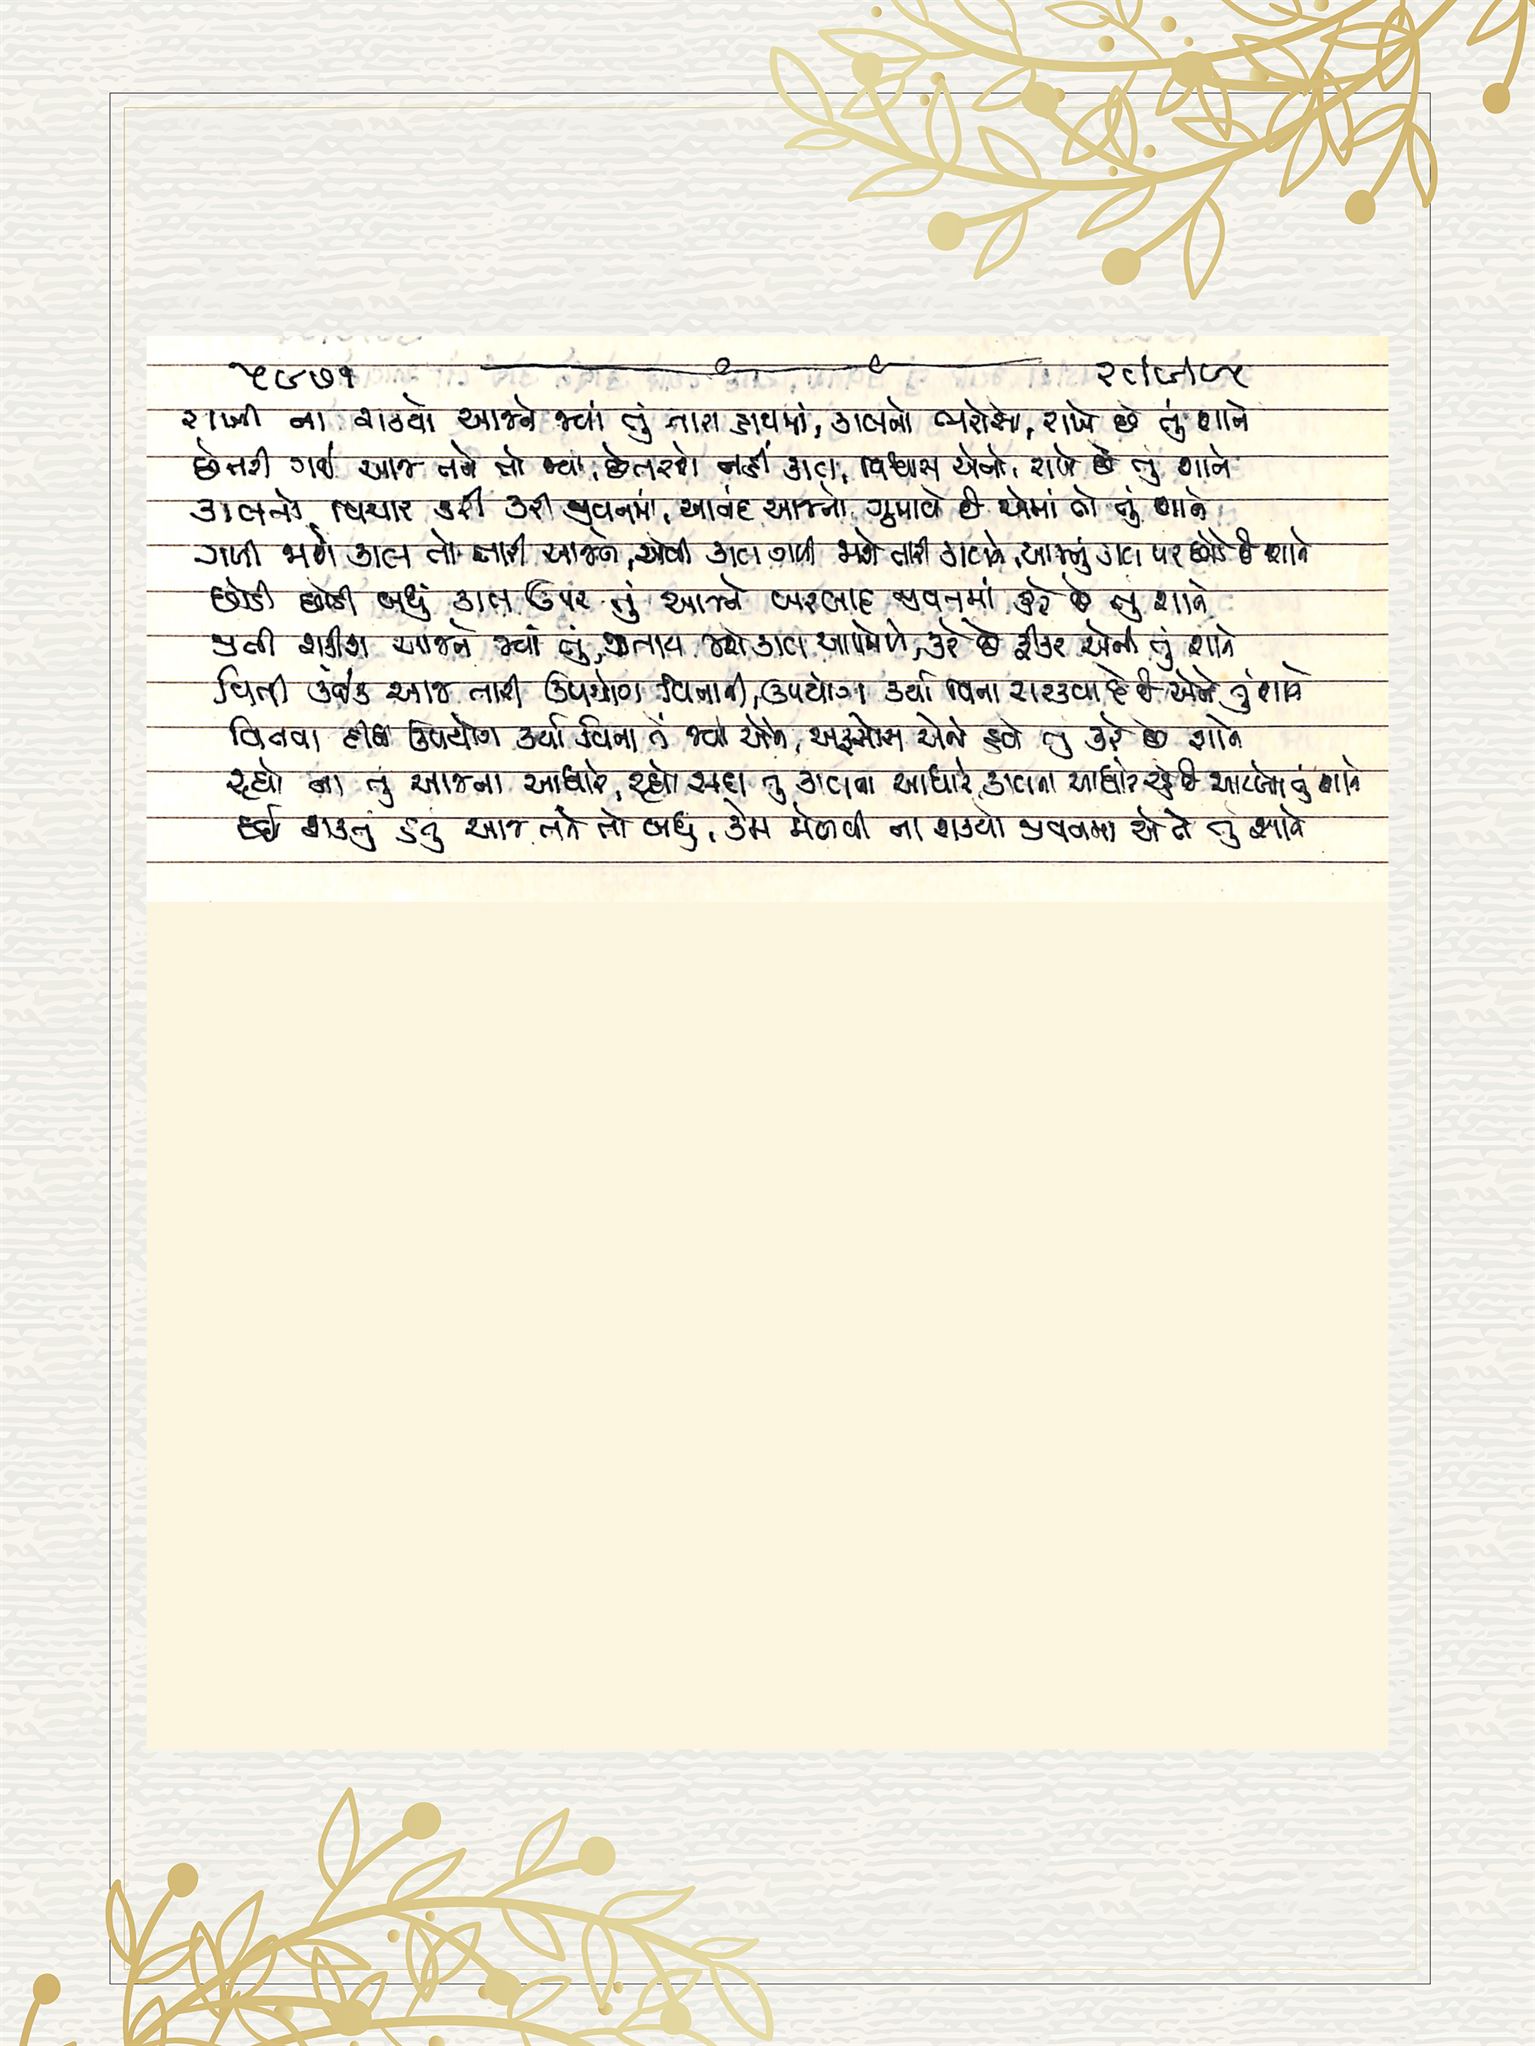 ૫૯૭૧ ૨૮/૯/૯૫
રાખી ના શક્યો આજને જ્યાં તું તારા હાથમાં, કાલનો ભરોસો, રાખે છે તું શાને
છેતરી ગઈ આજ તને તો જ્યાં, છેતરશે નહીં કાલ, વિશ્વાસ એનો, રાખે છે તું શાને
કાલનો વિચાર કરી કરી જીવનમાં, આનંદ આજનો ગુમાવે છે એમાં તો તું શાને
ગળી જાશે કાલ તો તારી આજને, એવી કાલ ગળી જાશે તારી કાલને, આજનું કાલ પર છોડે છે શાને
છોડી છોડી બધું કાલ ઉપર તું આજને બરબાદ જીવનમાં કરે છે તું શાને
જીતી શકીશ આજને જ્યાં તું, જીતાય જાશે કાલ આપમેળે, કરે છે ફીકર એની તું શાને
વિતી કંઈક આજ તારી ઉપયોગ વિનાની, ઉપયોગ કર્યા વિના સરકવા દે છે એને તું શાને
વિતવા દીધી ઉપયોગ કર્યા વિના તેં જ્યાં એને, અફસોસ એનો હવે તું કરે છે શાને
રહ્યો ના તું આજના આધારે, રહ્યો સદા તું કાલના આધારે, કાલના આધારે રહે છે આટલો તું શાને
દઈ શકતું હતું આજ તને તો બધું, કેમ મેળવી ના શક્યો જીવનમાં એને તું શાને